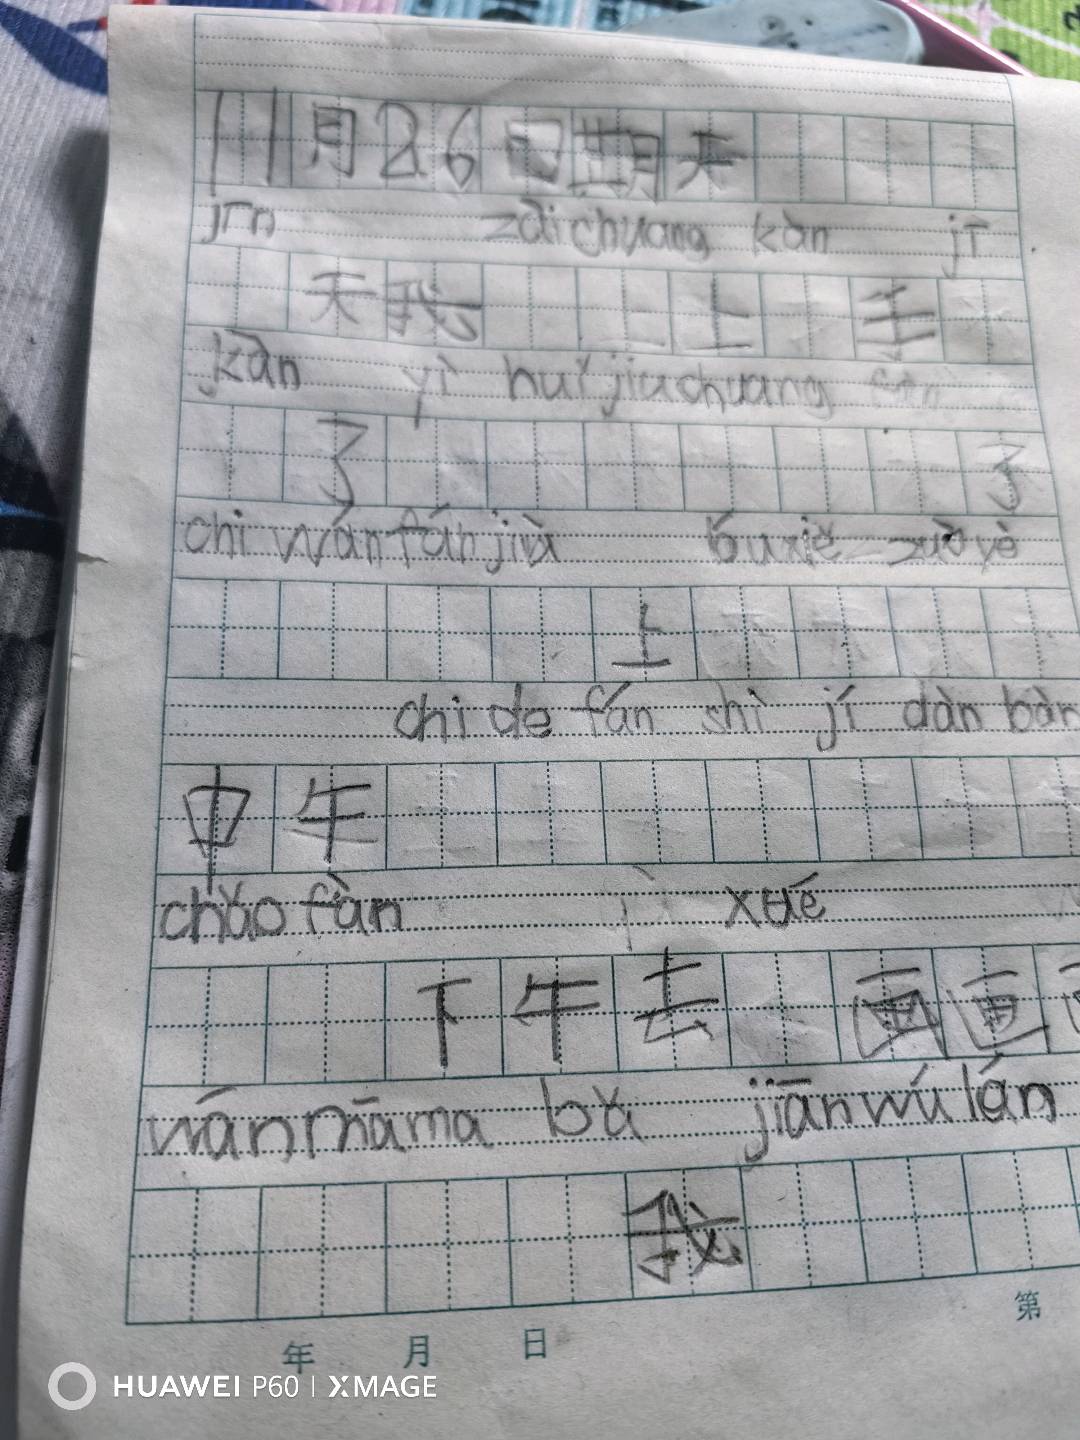 11月26日期天
jīn zāi chuang kàn jī
天我 上 手
kàn yì huǐ jiu chuang
了 了
chi wán fán jiù bu xiě zuò yè
上
chi de fán shì jí dàn bàn
中午
chǎo fàn yì xué
下午去 画画
wán māma bǎ jiān wú lán
我
年 月 日 第
HUAWEI P60 | XMAGE